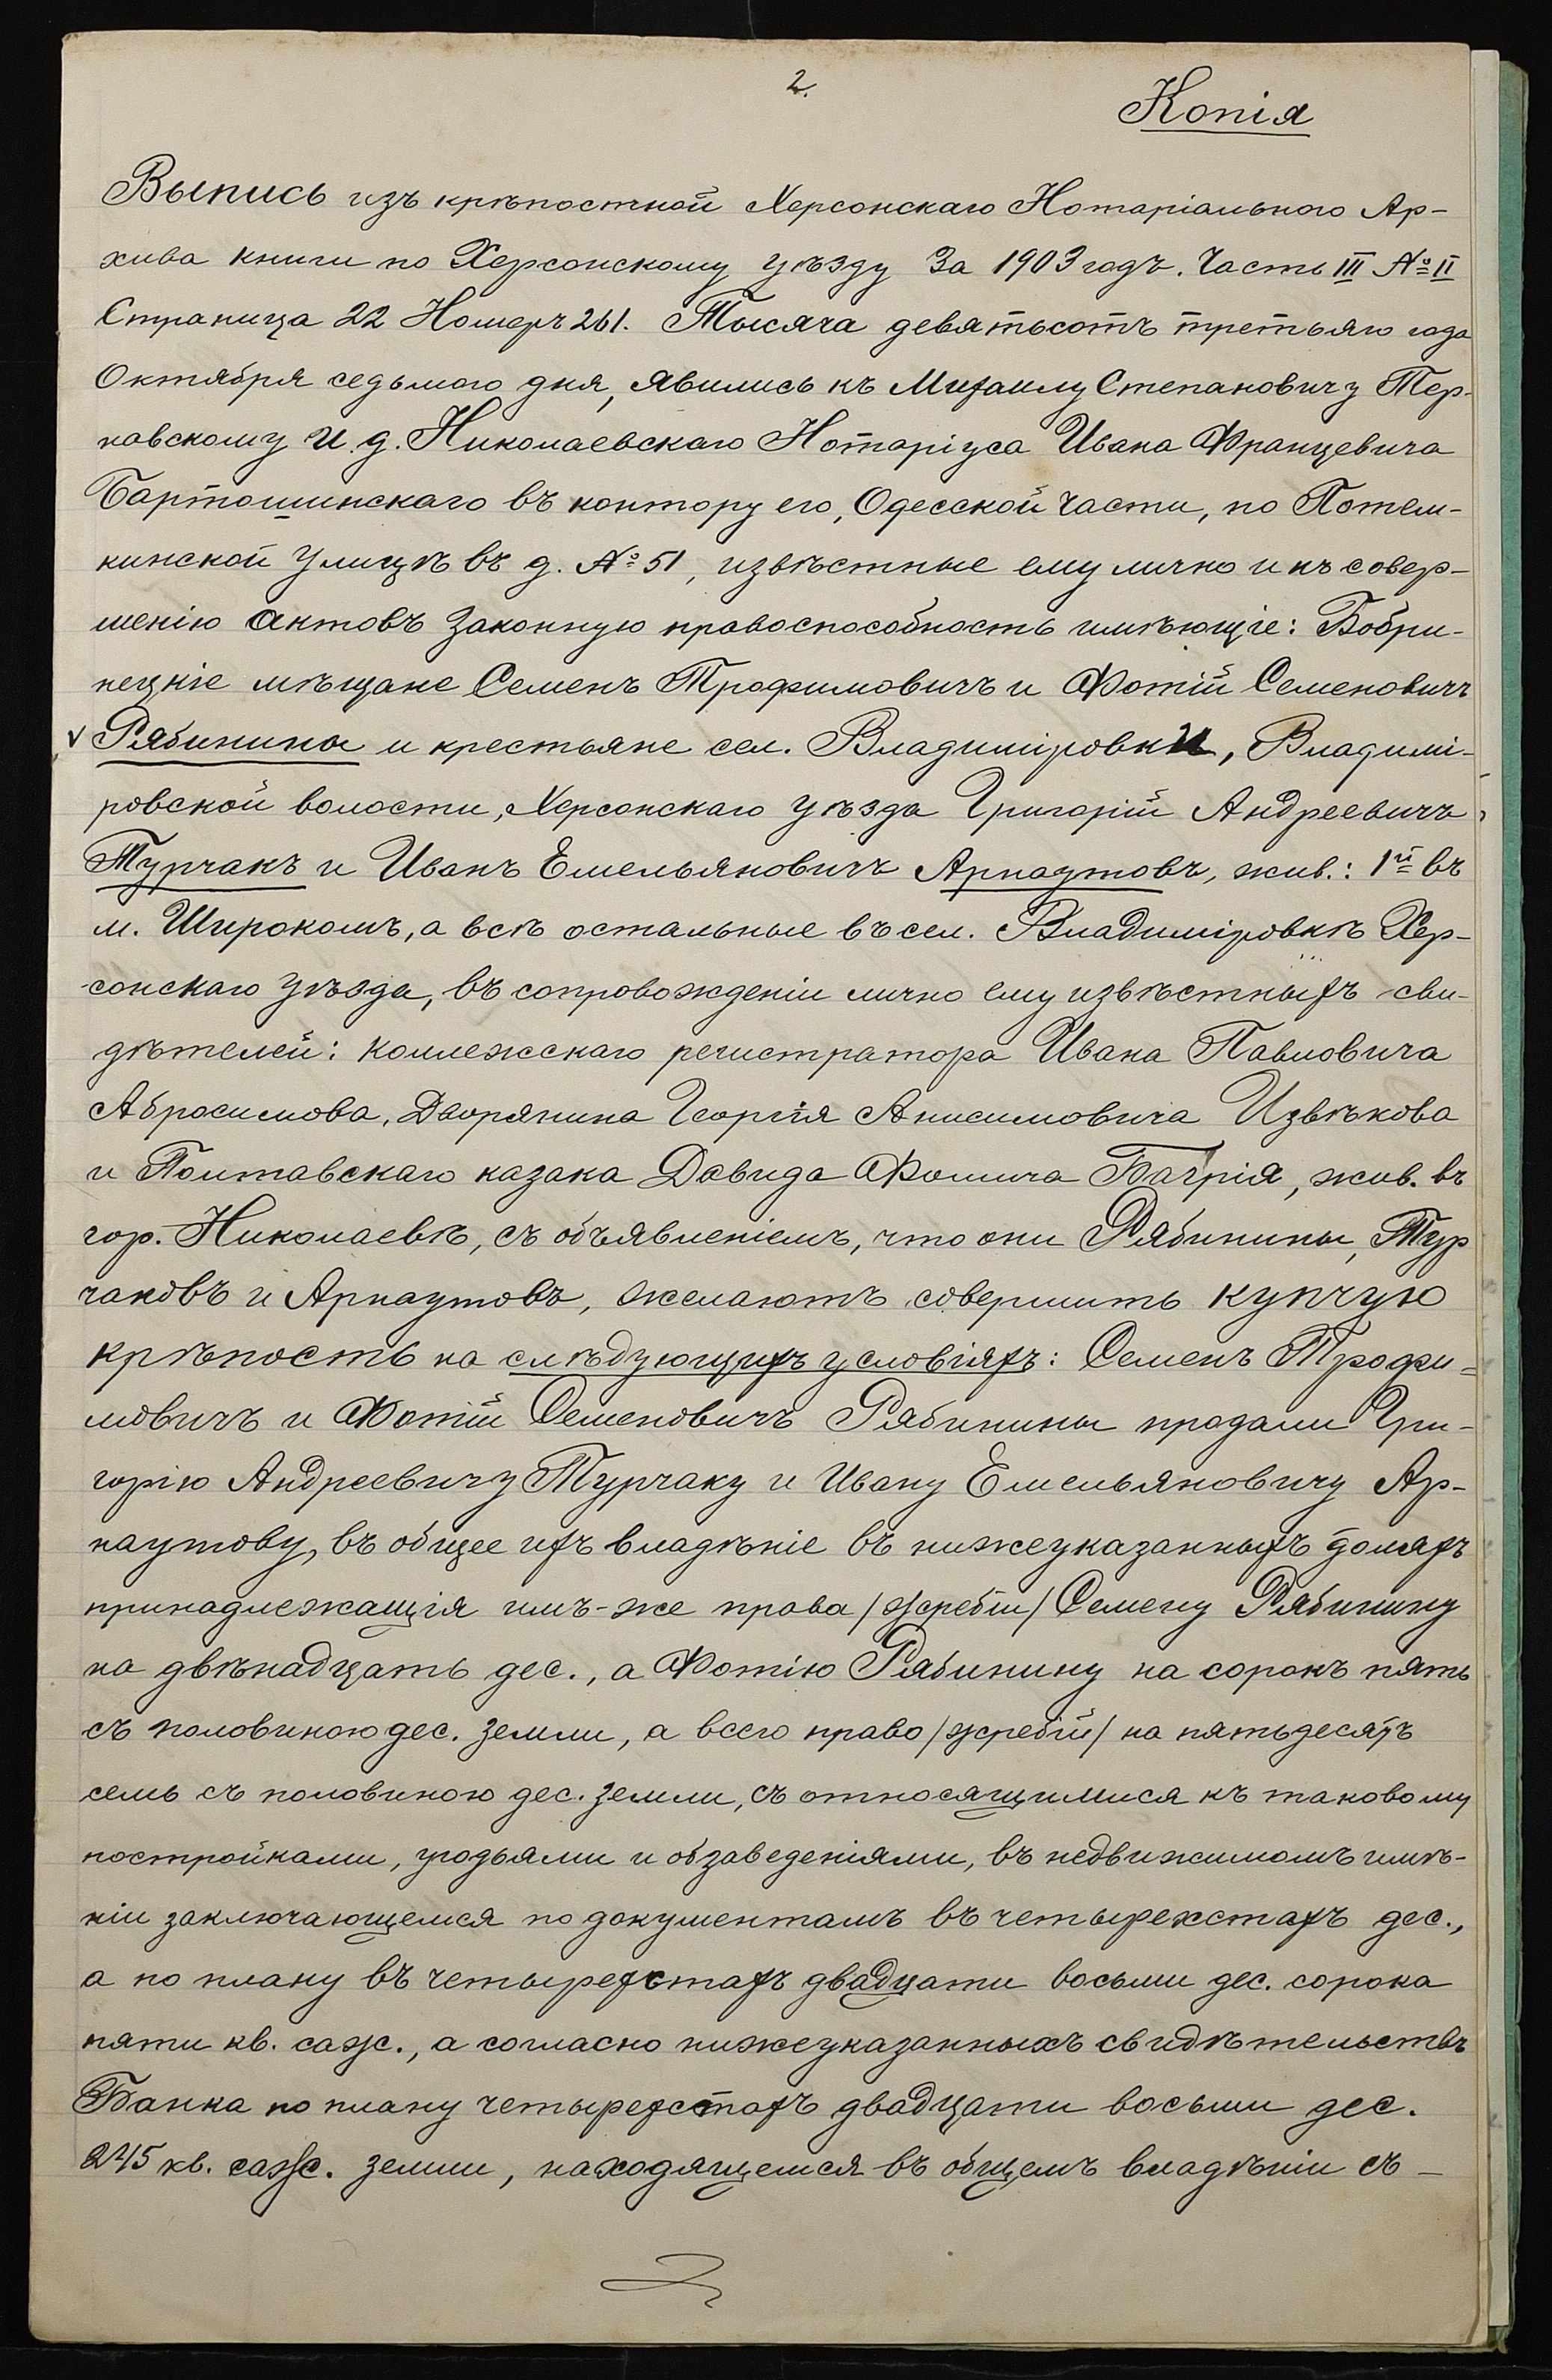 2.
Копія
Выпись изъ крѣпостной Херсонскаго Нотаріальнаго Ар-
хива книги по Херсонскому уѣзду За 1903 годъ. Часть III № II
Страница 22 Номеръ 261. Тысяча девятьсотъ третьяго года
Октября седьмого дня, явились къ Михаилу Степановичу Тер-
навскому И. д. Николаевскаго Нотаріуса Ивана Францевича
Бартошинскаго въ контору его, Одесской части, по Потем-
кинской улицѣ въ д. № 51, извѣстные ему лично и къ совер-
шенію актовъ законную правоспособность имѣющіе: Бобри-
нецкіе мѣщане Семенъ Трофимовичъ и Фотій Семеновичъ
Рябинины и крестьяне сел. Владиміровки, Владимі-
ровской волости, Херсонскаго уѣзда Григорій Андреевичъ
Турчакъ и Иванъ Емельяновичъ Арнаутовъ, жив.: 1й въ
м. Широкомъ, а всѣ остальные въ сел. Владиміровкѣ Хер-
сонскаго уѣзда, въ сопровожденіи лично ему извѣстныхъ сви-
дѣтелей: коллежскаго регистратора Ивана Павловича
Абросимова, Дворянина Георгія Анисимовича Извѣкова
и Полтавскаго казака Давида Фомича Багрія, жив. въ
гор. Николаевѣ, съ объявленіемъ, что они Рябинины, Тур
чаковъ и Арнаутовъ, желаютъ совершить купчую
крѣпость на слѣдующихъ условіяхъ: Семенъ Трофи-
мовичъ и Фотій Семеновичъ Рябинины продали Гри-
горію Андреевичу Турчаку и Ивану Емельяновичу Ар-
наутову, въ общее ихъ владѣніе въ нижеуказанныхъ доляхъ
принадлежащія имъ-же права /жребіи/ Семену Рябинину
на двѣнадцать дес., а Фотію Рябинину на сорокъ пять
съ половиною дес. земли, а всего право /жребій/ на пятьдесятъ
семь съ половиною дес. земли, съ относящимися къ таковому
постройками, угодьями и обзаведеніями, въ недвижимомъ имѣ-
ніи заключающемся по документамъ въ четырехстахъ дес.,
а по плану въ четырехстахъ двадцати восьми дес. сорока
пяти кв. саж., а согласно нижеуказанныхъ свидѣтельствъ
Банка по плану четырехстахъ двадцати восьми дес.
245 кв. саж. земли, находящемся въ общемъ владѣніи съ –